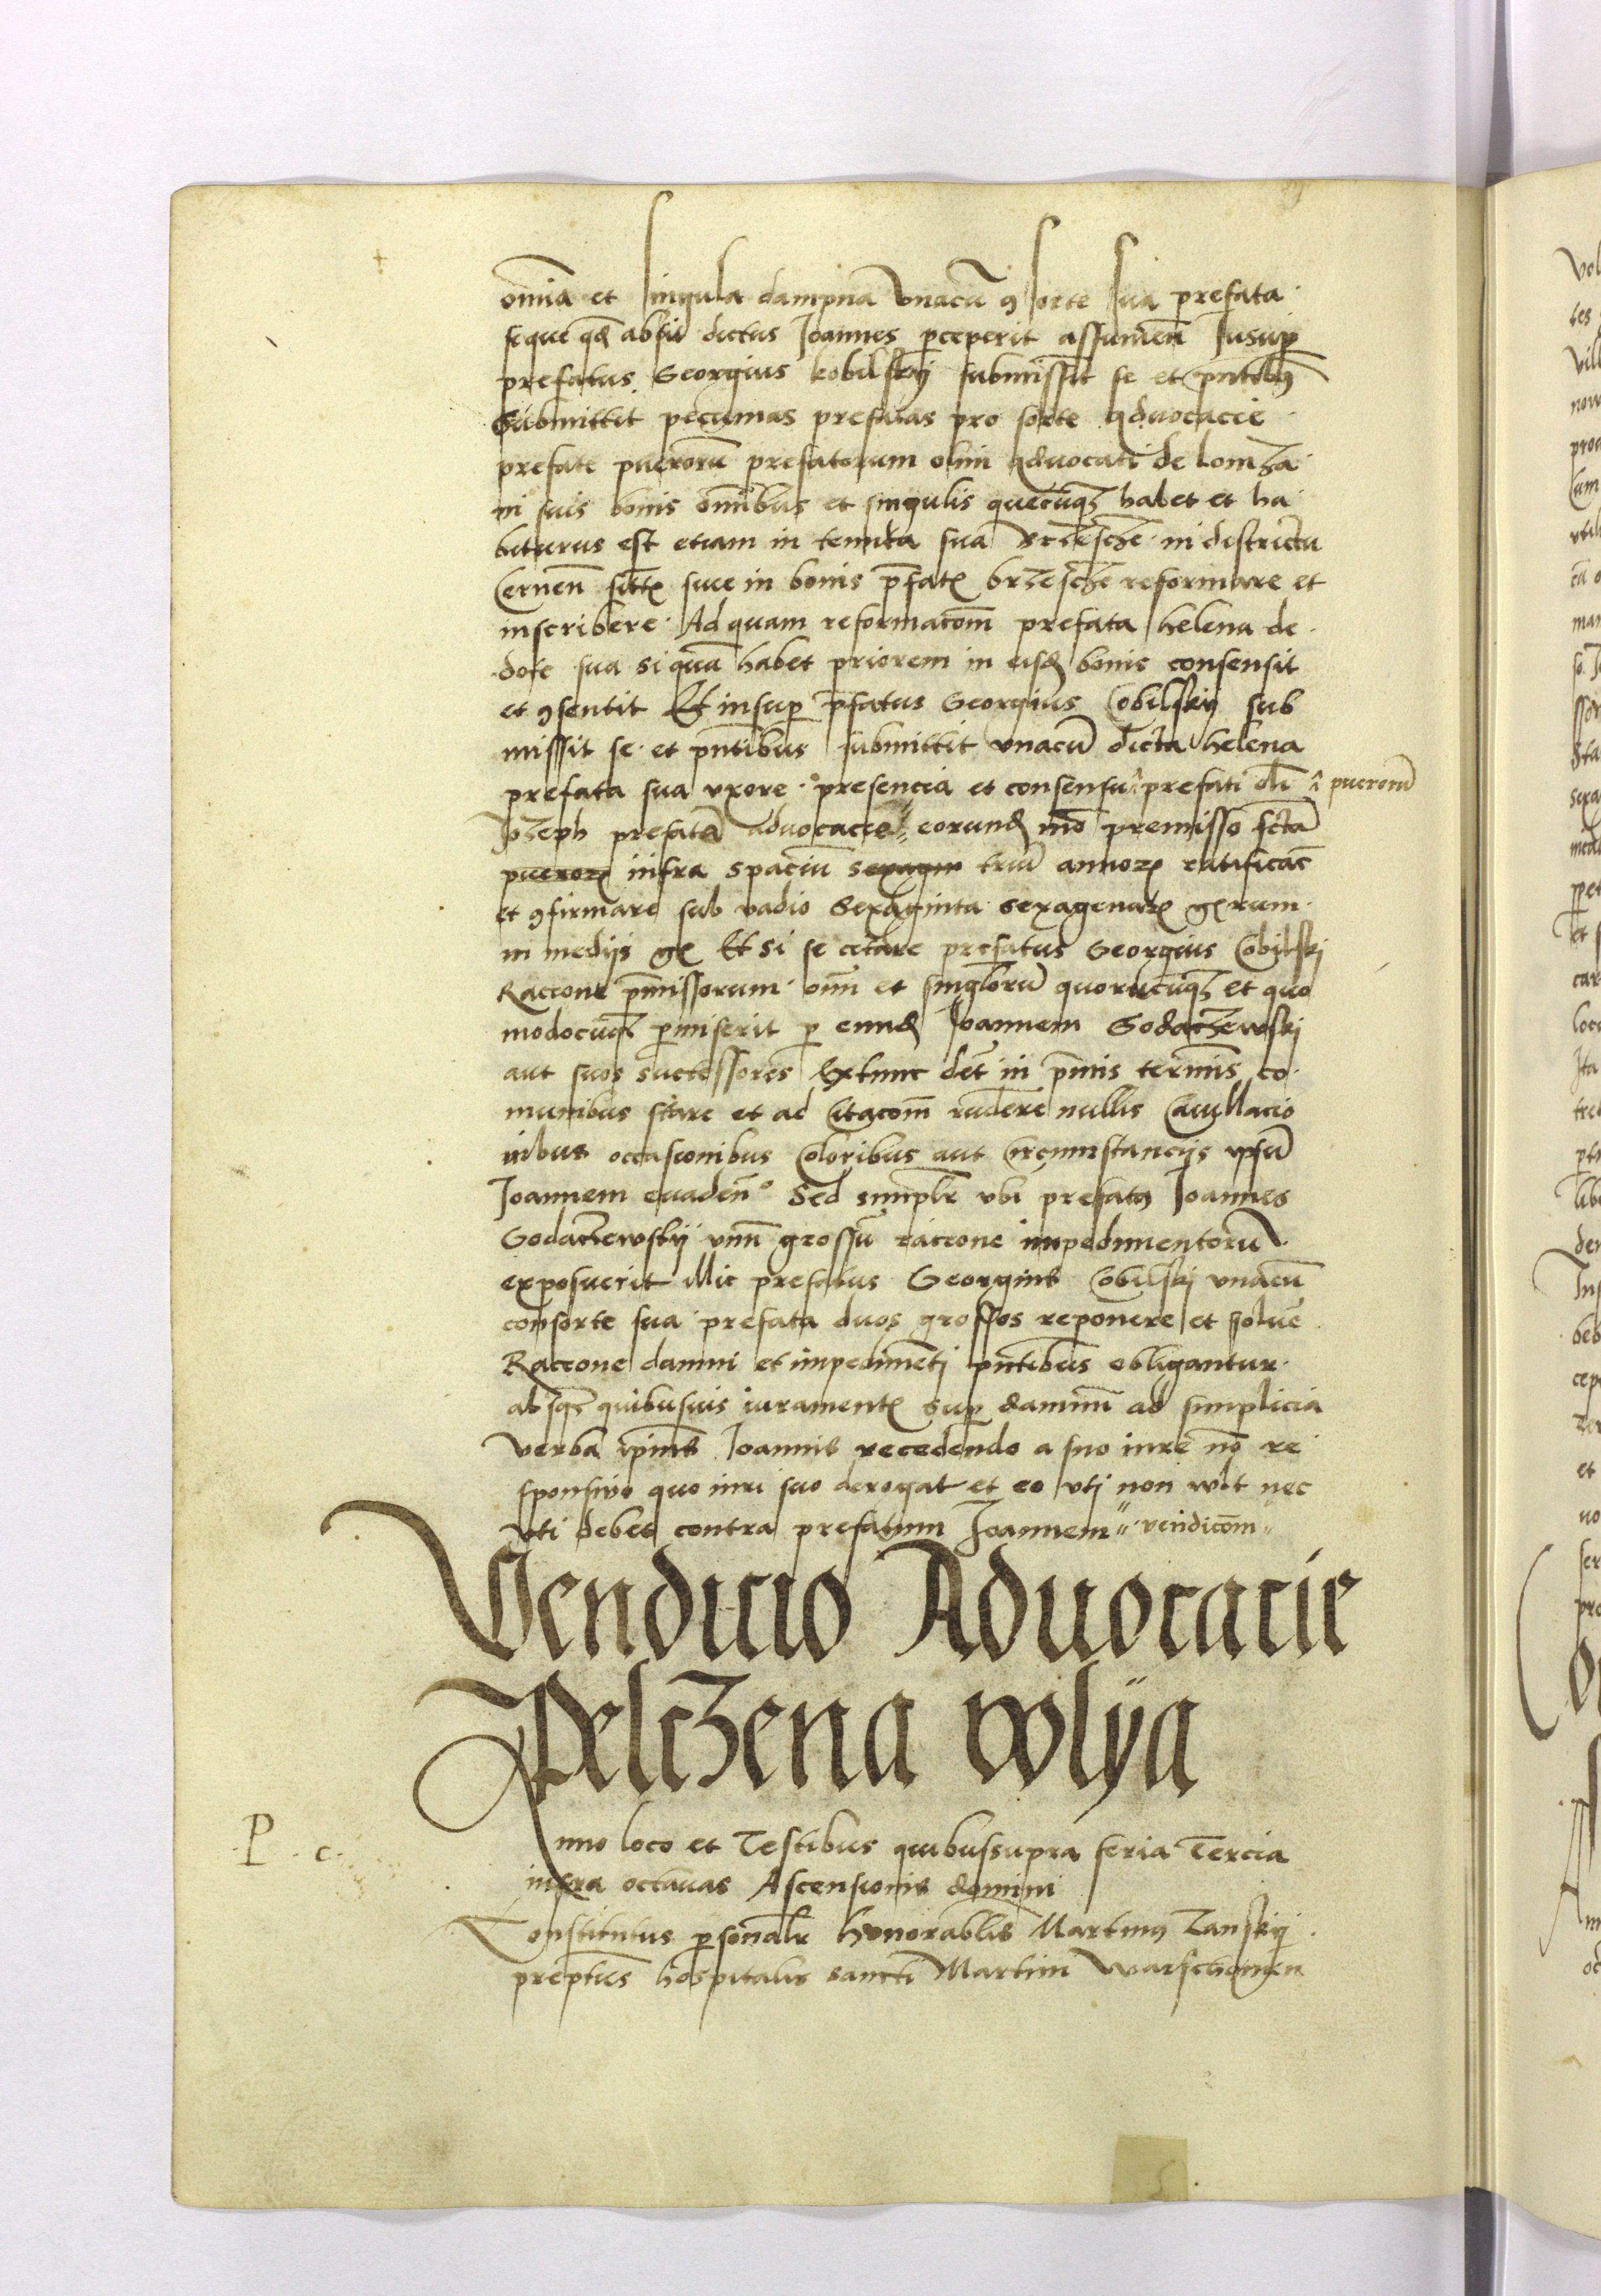 om̅ia et singula dampna vnacu̅ ꝯsorte sua prefata
seque qd̅ absit dictus Joannes ꝑceperit assumen̅ Insuꝑ
prefatus Georgius kobilskij submissit se et pn̅tibꝰ
Submittit pecunias prefatas pro sorte aduocacie
prefate pueroru̅ prefatorum olim aduocati de lomza
in suis bonis om̅ibus et singulis quecu̅qꝫ habet et ha
biturus est etiam in tenuta sua brzescze in districtu
Cernen̅ siue in bonis p̅fatꝭ brzescze reformare et
inscribere Ad quam reformacom̅ prefata helena de
dote sua si qua̅ habet priorem in eisd̅ bonis consensit
et ꝯsentit Et insuꝑ p̅fatus Georgius Cobilskij sub
missit se et pn̅tibus submittit vnacu̅ dicta helena
prefata sua vxore presencia et consensu prefati oli̅ pueroru̅
Jozeph prefata̅ aduocacie eorund̅ mo̅ premisso scta̅
pueroꝝ infra spaciu̅ sexagin triu̅ annoꝝ ratificac̅
et ꝯfirmare sub vadio Sexaginta sexagenaꝝ gꝝrum
in medijs gꝝ Et si se citare prefatus Georgius Cobilski
Racione p̅missorum om̅ et singloru̅ quorucu̅qꝫ et quo
modocu̅qꝫ ꝑmiserit ꝑ eund̅ Joannem Godaczewski
aut suos successores Extunc det̅ in p̅mis termis̅ co
munibus stare et ad Citacom̅ rn̅dere nullis Cauillacio
nibus occasionibus Coloribus aut Circumstancijs ipsu̅
Joannem euaden̅ Sed simplr̅ vbi prefatꝰ Joannes
Godaczewskij vnu̅ grossu̅ racione impedimentoru̅
exposuerit illic prefatus Georgius Cobilski vnacu̅
consorte sua prefata duos grossos reponere et soluer̅
Racione damni et impedime̅ti pn̅tibus obligantur
absqꝫ quibusuis iuramentꝭ suꝑ damnu̅ ad simplicia
verba ip̅ius Joannis recedendo a suo iure no̅ re
sponsiuo quo iuri suo derogat et eo vti non wlt nec
vti debet contra prefatum Joannem vendicom̅
Vendicio Aduocacie
Pelczena wlÿa
Anno loco et Testibus quibussupra feria Tercia
infra octauas Ascensionis domini
P. c.
Constitutus ꝑsonalr̅ honorablis Martinꝰ Zanskij
prep̅tus hospitalis sancti Martini Warschouien